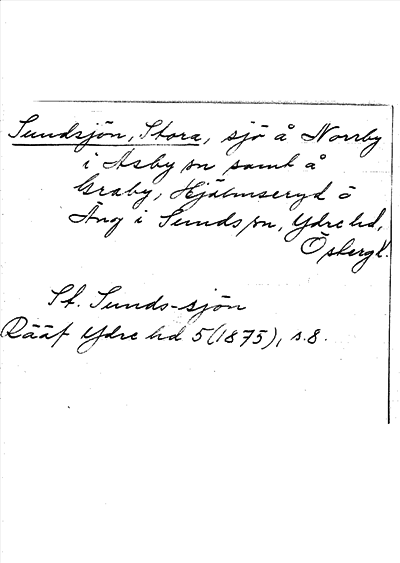 Sundsjön, Stora, sjö å Norrby
i Asby sn samt å
Graby, Hjälmseryd o
Äng i Sunds sn, Ydre hd,
Östergl.
St. Sunds-sjön
Rääf Ydre hd 5(1875), s.8.